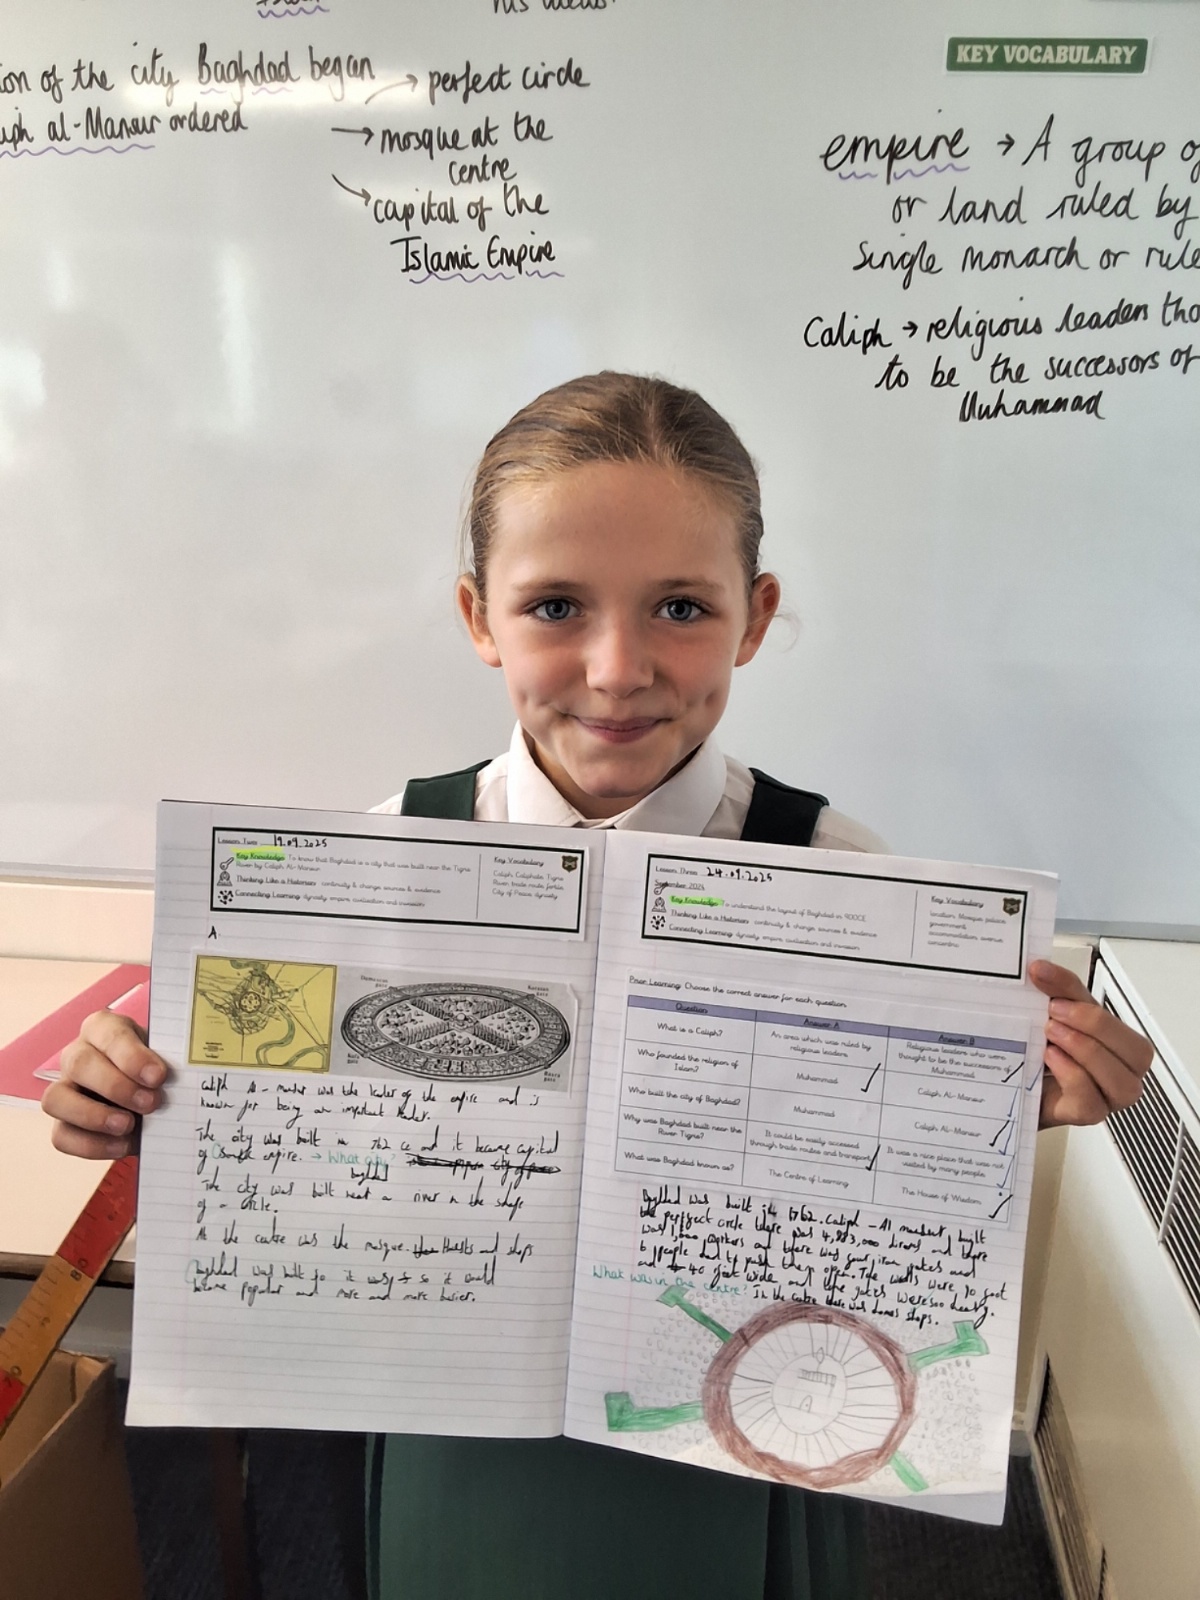 his ideas.
ion of the city Baghdad began
iph al-Mansur ordered
→ perfect circle
→ mosque at the
centre
→ capital of the
Islamic Empire
KEY VOCABULARY
empire → A group of
or land ruled by
single monarch or rule
Caliph → religious leaders tho
to be the successors of
Muhammad
Lesson Two 19.09.2025
Key Knowledge: To know that Baghdad is a city that was built near the Tigris
River by Caliph Al-Mansur.
Thinking Like a Historian: continuity & change, sources & evidence
Connecting Learning: dynasty, empire, civilisation and invasion
Key Vocabulary
Caliph, Caliphate, Tigris
River, trade route, fertile,
City of Peace, dynasty
A.
Damascus
gate
Kufa
gate
Basra
gate
Caliph Al-mansur was the leader of the empire and is
known for being an important leader.
The city was built in 762 ce and it became capital
of empire. → What city?
baghdad
The city was built near a river in the shape
of a circle.
At the centre was the mosque. and shops
baghdad was built so it was so it could
become popular and more and more busier.
Lesson Three 24.09.2025
September 2025
Key Knowledge: To understand the layout of Baghdad in 900CE
Thinking Like a Historian: continuity & change, sources & evidence
Connecting Learning: dynasty, empire, civilisation and invasion
Key Vocabulary
location, Mosque, palace,
government,
accommodation, avenue,
concentric
Prior Learning: Choose the correct answer for each question.
Question Answer A Answer B
What is a Caliph? An area which was ruled by religious leaders Religious leaders who were thought to be the successors of Muhammad
Who founded the religion of Islam? Muhammad Caliph Al- Mansur
Who built the city of Baghdad? Muhammad Caliph Al-Mansur
Why was Baghdad built near the River Tigris? It could be easily accessed through trade routes and transport It was a nice place that was not visited by many people.
What was Baghdad known as? The Centre of Learning The House of Wisdom
Baghdad was built in 762. Caliph - Al mansur built
the perffect circle there was 4,883,000 dirams and there
was 1,000 workers and there was four iron gates and
6 people had to push them open. The walls were 90 foot
and 40 feet wide and the gates were so heavy.
What was in the centre? In the centre there was domes shops.